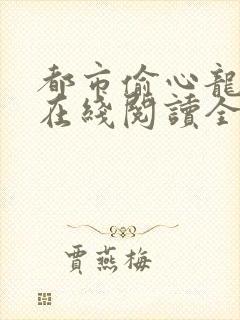 都市偷心龍
在綫閱讀全
賈燕梅